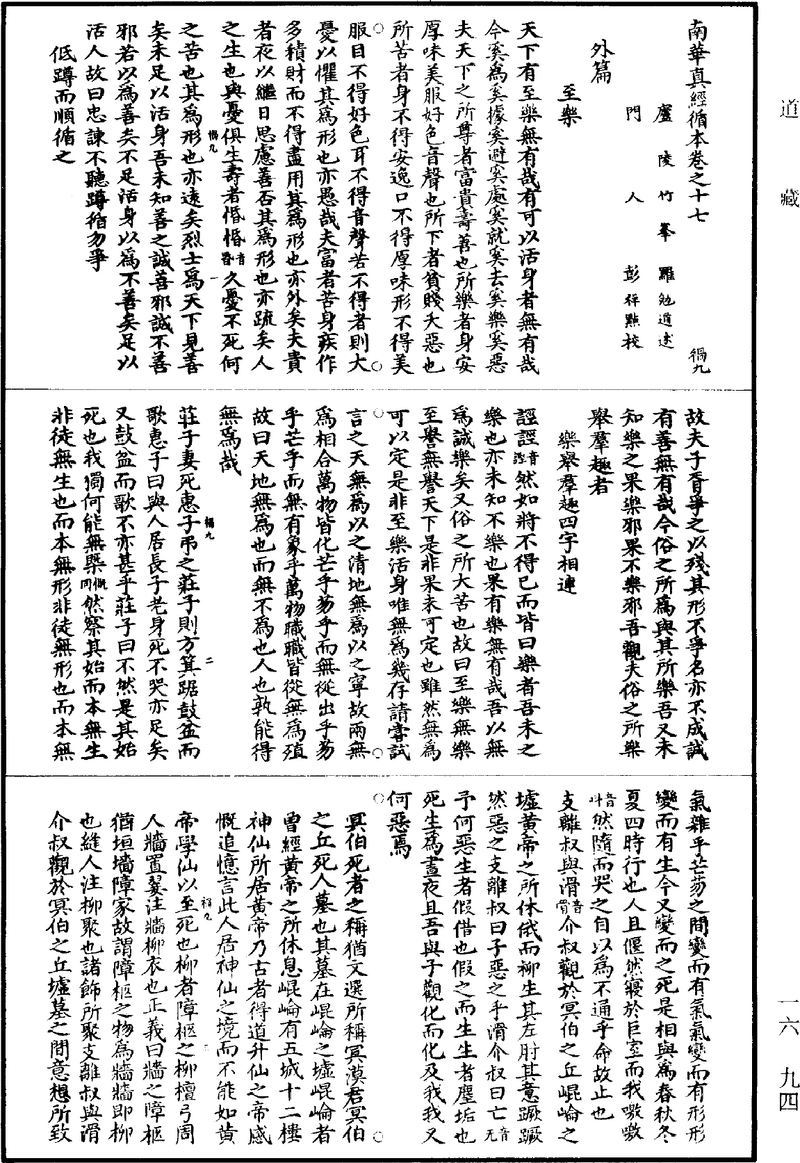 道藏
南華真經循本卷之十七
禍九
廬陵竹峯羅勉道述
門人彭祥點校
外篇
至樂
天下有至樂無有哉有可以活身者無有哉
今奚為奚據奚避奚處奚就奚去奚樂奚惡
夫天下之所尊者富貴壽善也所樂者身安
厚味美服好色音聲也所下者貧賤夭惡也
所苦者身不得安逸口不得厚味形不得美
服目不得好色耳不得音聲若不得者則大
憂以懼其為形也亦愚哉夫富者苦身疾作
多積財而不得盡用其為形也亦外矣夫貴
者夜以繼日思慮善否其為形也亦疏矣人
之生也與憂俱生壽者惛惛音昏久憂不死何
禍九
一
之苦也其為形也亦遠矣烈士為天下見善
矣未足以活身吾未知善之誠善邪誠不善
邪若以為善矣不足活身以為不善矣足以
活人故曰忠諫不聽蹲循勿爭
低蹲而順循之
故夫子胥爭之以殘其形不爭名亦不成誠
有善無有哉今俗之所為與其所樂吾又未
知樂之果樂邪果不樂邪吾觀夫俗之所樂
舉羣趣者
樂舉羣趣四字相連
誙誙音然如將不得已而皆曰樂者吾未之
樂也亦未知不樂也果有樂無有哉吾以無
為誠樂矣又俗之所大苦也故曰至樂無樂
至譽無譽天下是非果未可定也雖然無為
可以定是非至樂活身唯無為幾存請嘗試
言之天無為以之清地無為以之寧故兩無
為相合萬物皆化芒乎芴乎而無從出乎芴
乎芒乎而無有象乎萬物職職皆從無為殖
故曰天地無為也而無不為也人也孰能得
無為哉
禍九
二
莊子妻死惠子弔之莊子則方箕踞鼓盆而
歌惠子曰與人居長子老身死不哭亦足矣
又鼓盆而歌不亦甚乎莊子曰不然是其始
死也我獨何能無槩慨同然察其始而本無生
非徒無生也而本無形非徒無形也而本無
氣雜乎芒芴之間變而有氣氣變而有形形
變而有生今又變而之死是相與為春秋冬
夏四時行也人且偃然寢於巨室而我噭噭
音叫然隨而哭之自以為不通乎命故止也
支離叔與滑音骨介叔觀於冥伯之丘崐崘之
墟黃帝之所休俄而柳生其左肘其意蹶蹶
然惡之支離叔曰子惡之乎滑介叔曰亡音無
予何惡生者假借也假之而生生者塵垢也
死生為晝夜且吾與子觀化而化及我我又
何惡焉
冥伯死者之稱猶文選所稱冥漠君冥伯
之丘死人墓也其墓在崐崘之墟崐崘者
曾經黃帝之所休息崐崘有五城十二樓
神仙所居黃帝乃古者得道升仙之帝感
慨追憶言此人居神仙之境而不能如黃
禍九
三
帝學仙以至死也柳者障柩之柳檀弓周
人牆置翣注牆柳衣也正義曰牆之障柩
猶垣墻障家故謂障柩之物為牆牆即柳
也縫人注柳聚也諸飾所聚支離叔與滑
介叔觀於冥伯之丘墟墓之間意想所致
一六 九四